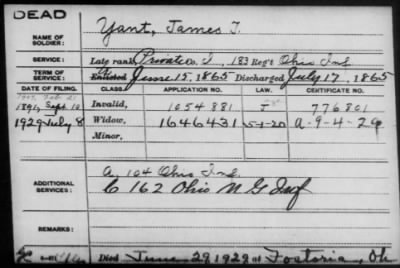 DEAD
NAME OF SOLDIER: Yant, James T.
SERVICE: Late rank, Private Co. I, 183 Reg't Ohio Inf
TERM OF SERVICE: Enlisted June 15, 1865 Discharged July 17, 1865
DATE OF FILING. CLASS. APPLICATION NO. LAW. CERTIFICATE NO.
1891, Sept. 10 Invalid, 1054881 J 776801
1929 July 8 Widow, 1646431 5-1-20 A-9-4-29
Minor,
ADDITIONAL SERVICES: A, 104 Ohio Inf.
C 162 Ohio N G Inf
REMARKS:
Died June 29 1929 at Fostoria, Oh